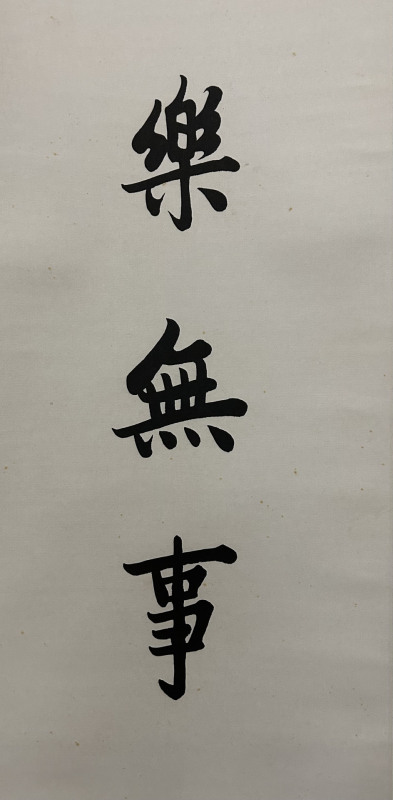 樂無事